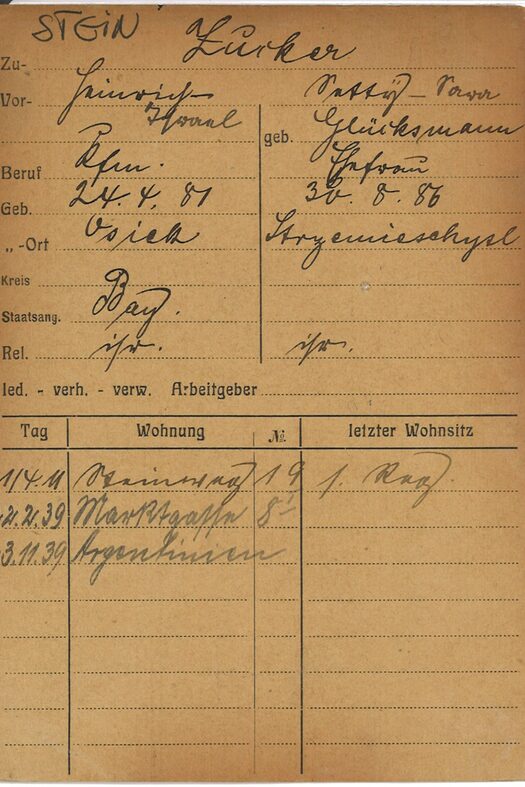 STEIN
Zu- Zucker
Vor- Heinrich Setty - Sara
Israel geb. Glücksmann
Beruf Kfm. Ehefrau
Geb. 24. 4. 81 30. 8. 86
„ -Ort Osiek Strzemieschysl
Kreis
Staatsang. Bay.
Rel. isr. isr.
led. - verh. - verw. Arbeitgeber
Tag Wohnung № letzter Wohnsitz
1/4.11 Steinweg 19 s. Reg.
2.2.39 Marktgasse 8
3.11.39 Argentinien